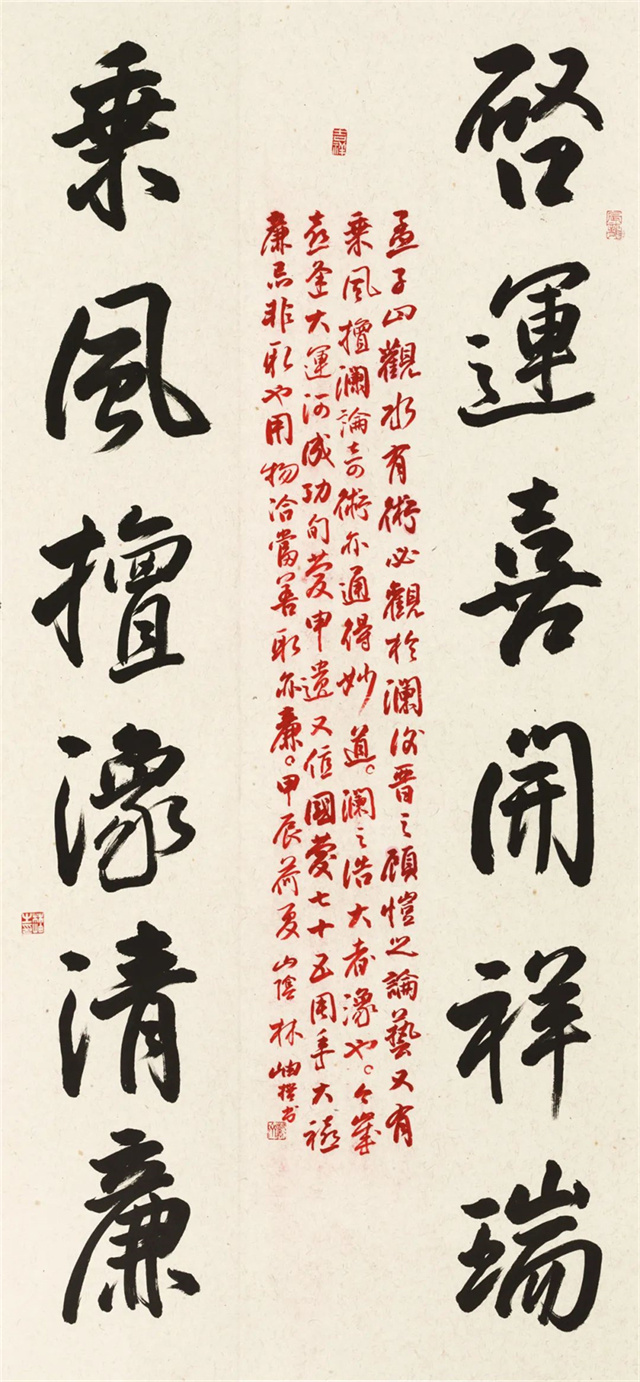 啓運喜開祥瑞
孟子曰觀水有術必觀於瀾後晉之顧愷之論藝又有
乘風擅瀾論奇術亦通得妙道。瀾之浩大者潒也。今歲
喜逢大運河成功旬慶申遺又值國慶七十五周年大禧
廉忌非取也用物洽當善取亦廉。甲辰荷夏山陰林岫撰书
乘風擅潒清廉
吉祥